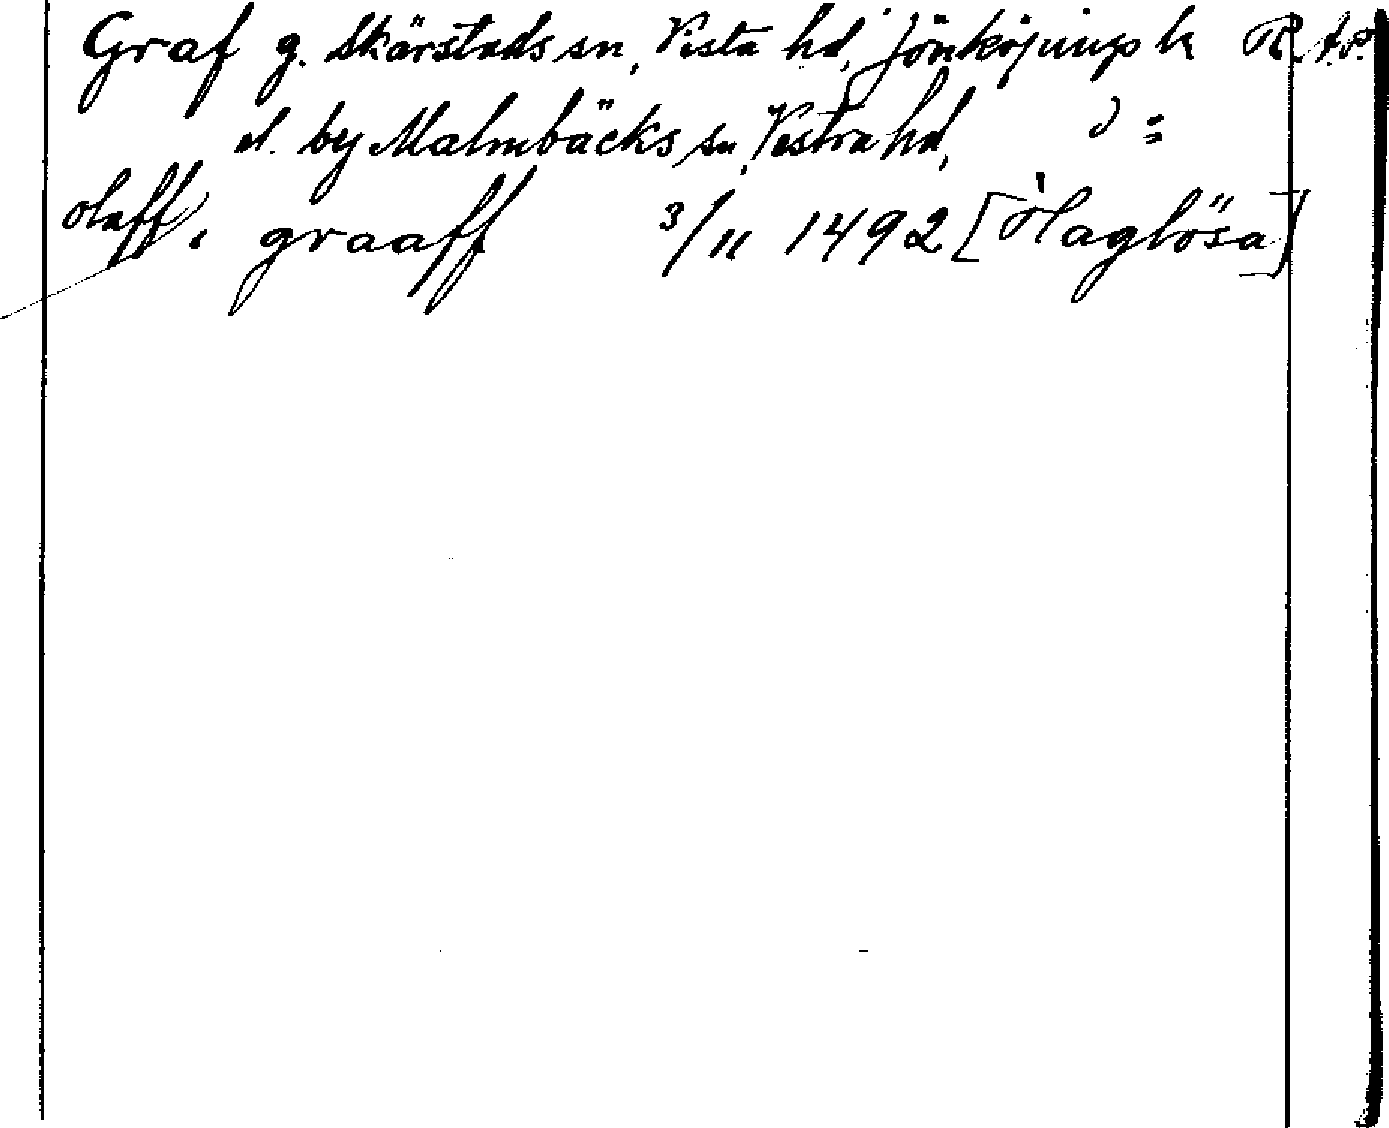 Graf g. Skärstads sn, Vista hd, Jönköpings l. R.A.P.
el. by Malmbäcks sn, Vestra hd,
olaff i graaff 3/11 1492 [Haglösa]